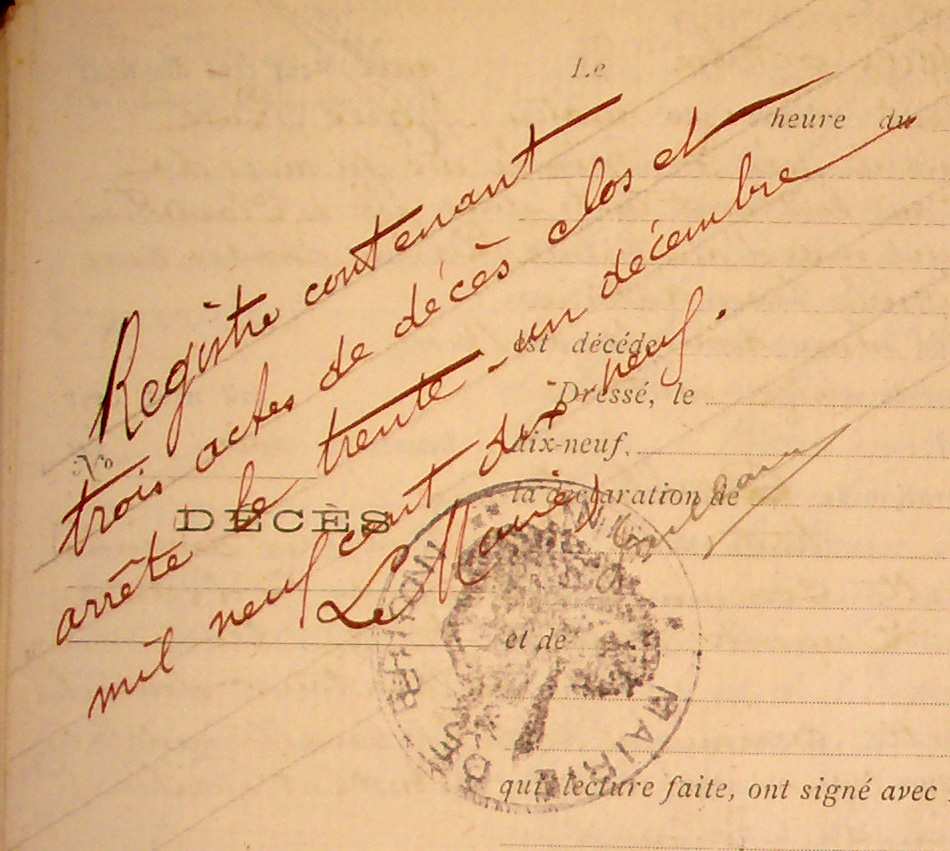 Le
heure du
Registre contenant
trois actes de décès clos et
arrête le trente-un décembre
mil neuf cent dix neuf.
Le Maire
est décédé
Dressé, le
dix-neuf.
No
la déclaration de
DÉCÈS
et de
MAIRIE
qui, lecture faite, ont signé avec